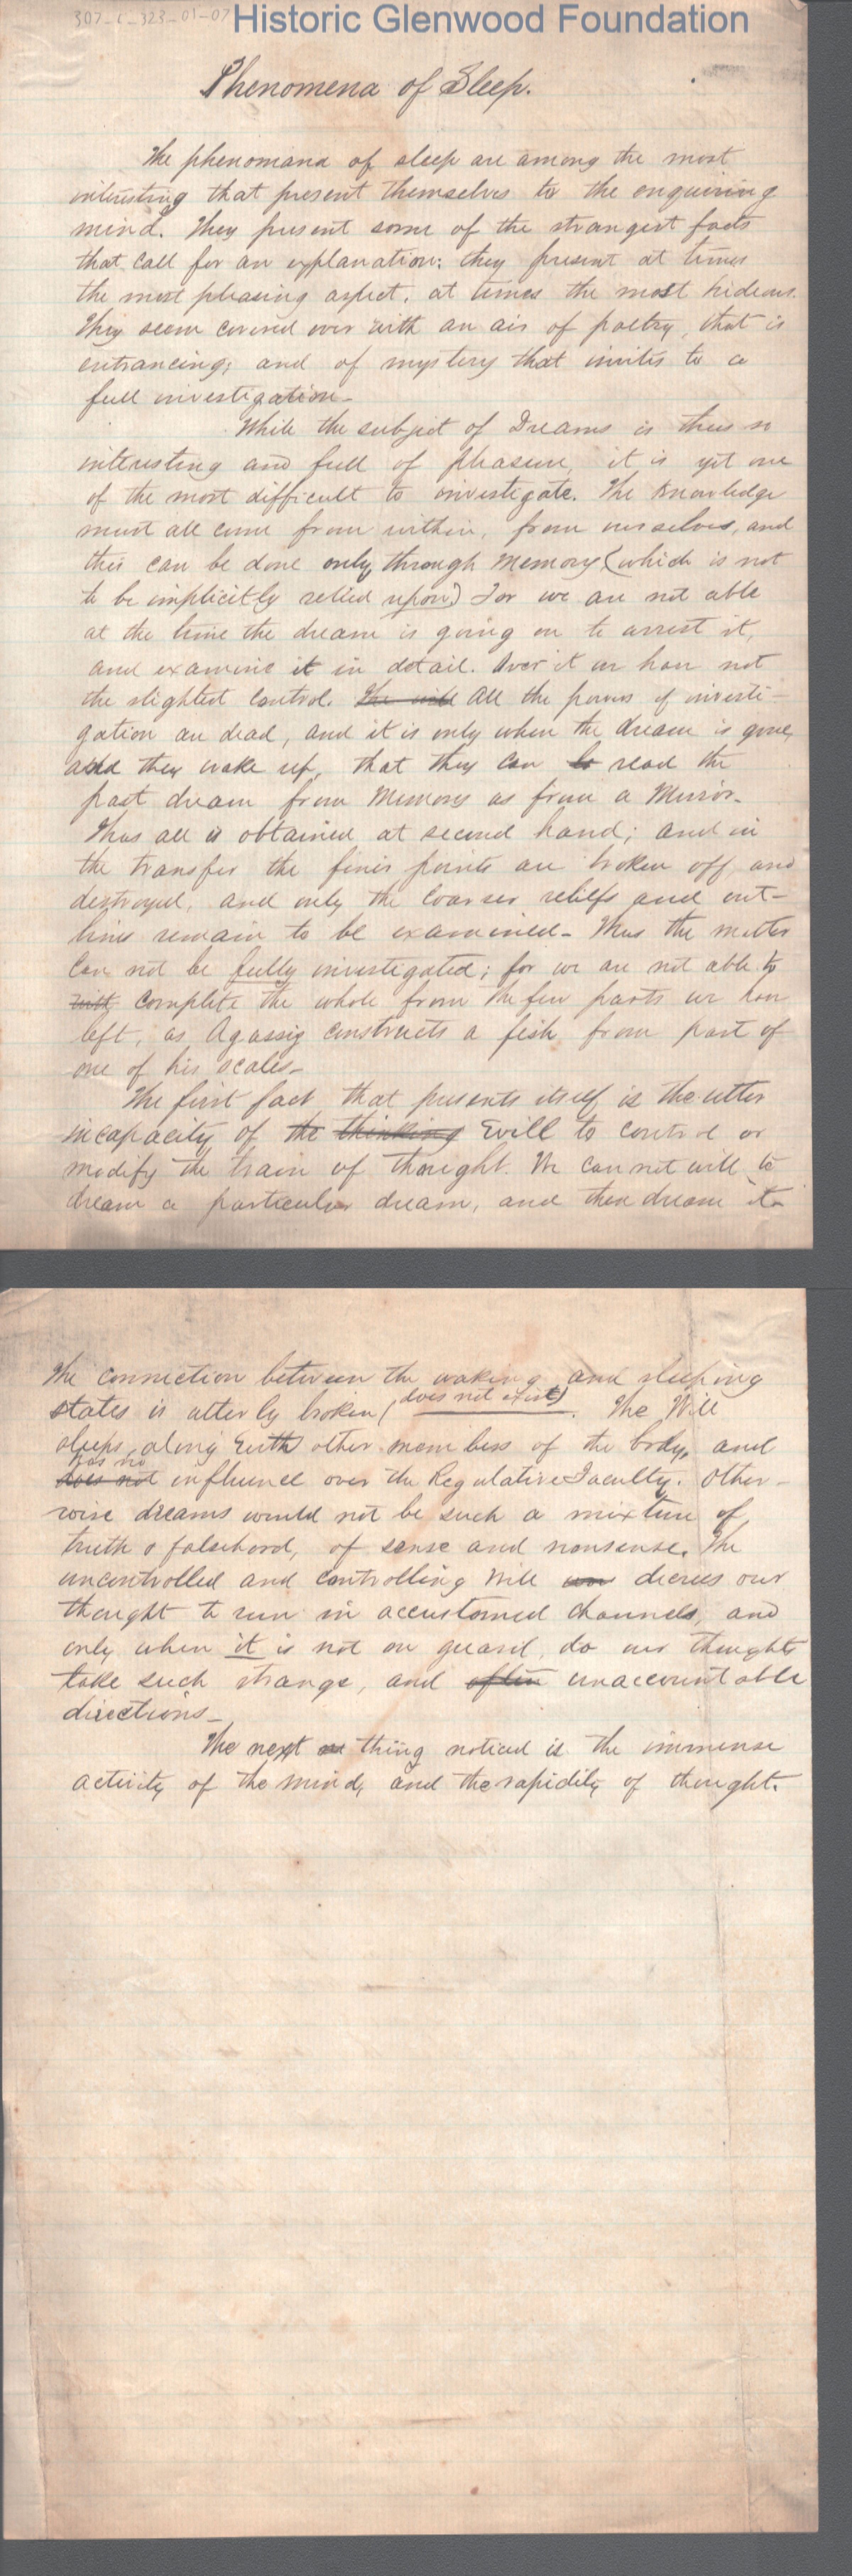 307-C-323-01-07 Historic Glenwood Foundation
Phenomena of Sleep.
The phenomana of sleep are among the most
interesting that present themselves to the enquiring
mind. They present some of the strangest facts
that call for an explanation; they present at times
the most pleasing aspect, at times the most hideous.
They seem covered over with an air of poetry, that is
entrancing; and of mystery that invites to a
full investigation-
While the subject of Dreams is thus so
interesting and full of pleasure, it is yet one
of the most difficult to investigate. The knowledge
must all come from within, from ourselves, and
this can be done only through Memory, (which is not
to be implicitly relied upon) For we are not able
at the time the dream is going on to arrest it,
and examine it in detail. Over it we have not
the slightest control. The will All the powers of investi-
gation are dead, and it is only when the dream is gone,
and they wake up, that they can be read the
past dream from Memory as from a Mirror-
Thus all is obtained at second hand; and in
the transfer the finer points are broken off and
destroyed, and only the coarser reliefs and out-
lines remain to be examined- Thus the matter
can not be fully investigated; for we are not able to
complete the whole from the few parts we have
left, as Agassiz constructs a fish from part of
one of his scales-
The first fact that presents itself is the utter
incapacity of the thinking will to control or
modify the train of thought. We can not will to
dream a particular dream, and then dream it-
The connection between the waking and sleeping
states is utterly broken (does not exist). The Will
sleeps along with other members of the body, and
has no
does not influence over the Regulative Faculty. Other-
wise dreams would not be such a mixture of
truth & falsehood, of sense and nonsense. The
uncontrolled and controlling Will decrees our
thought to run in accustomed channels, and
only when it is not on guard, do our thoughts
take such strange, and often unaccountable
directions-
The next thing noticed is the immense
activity of the mind, and the rapidity of thought.